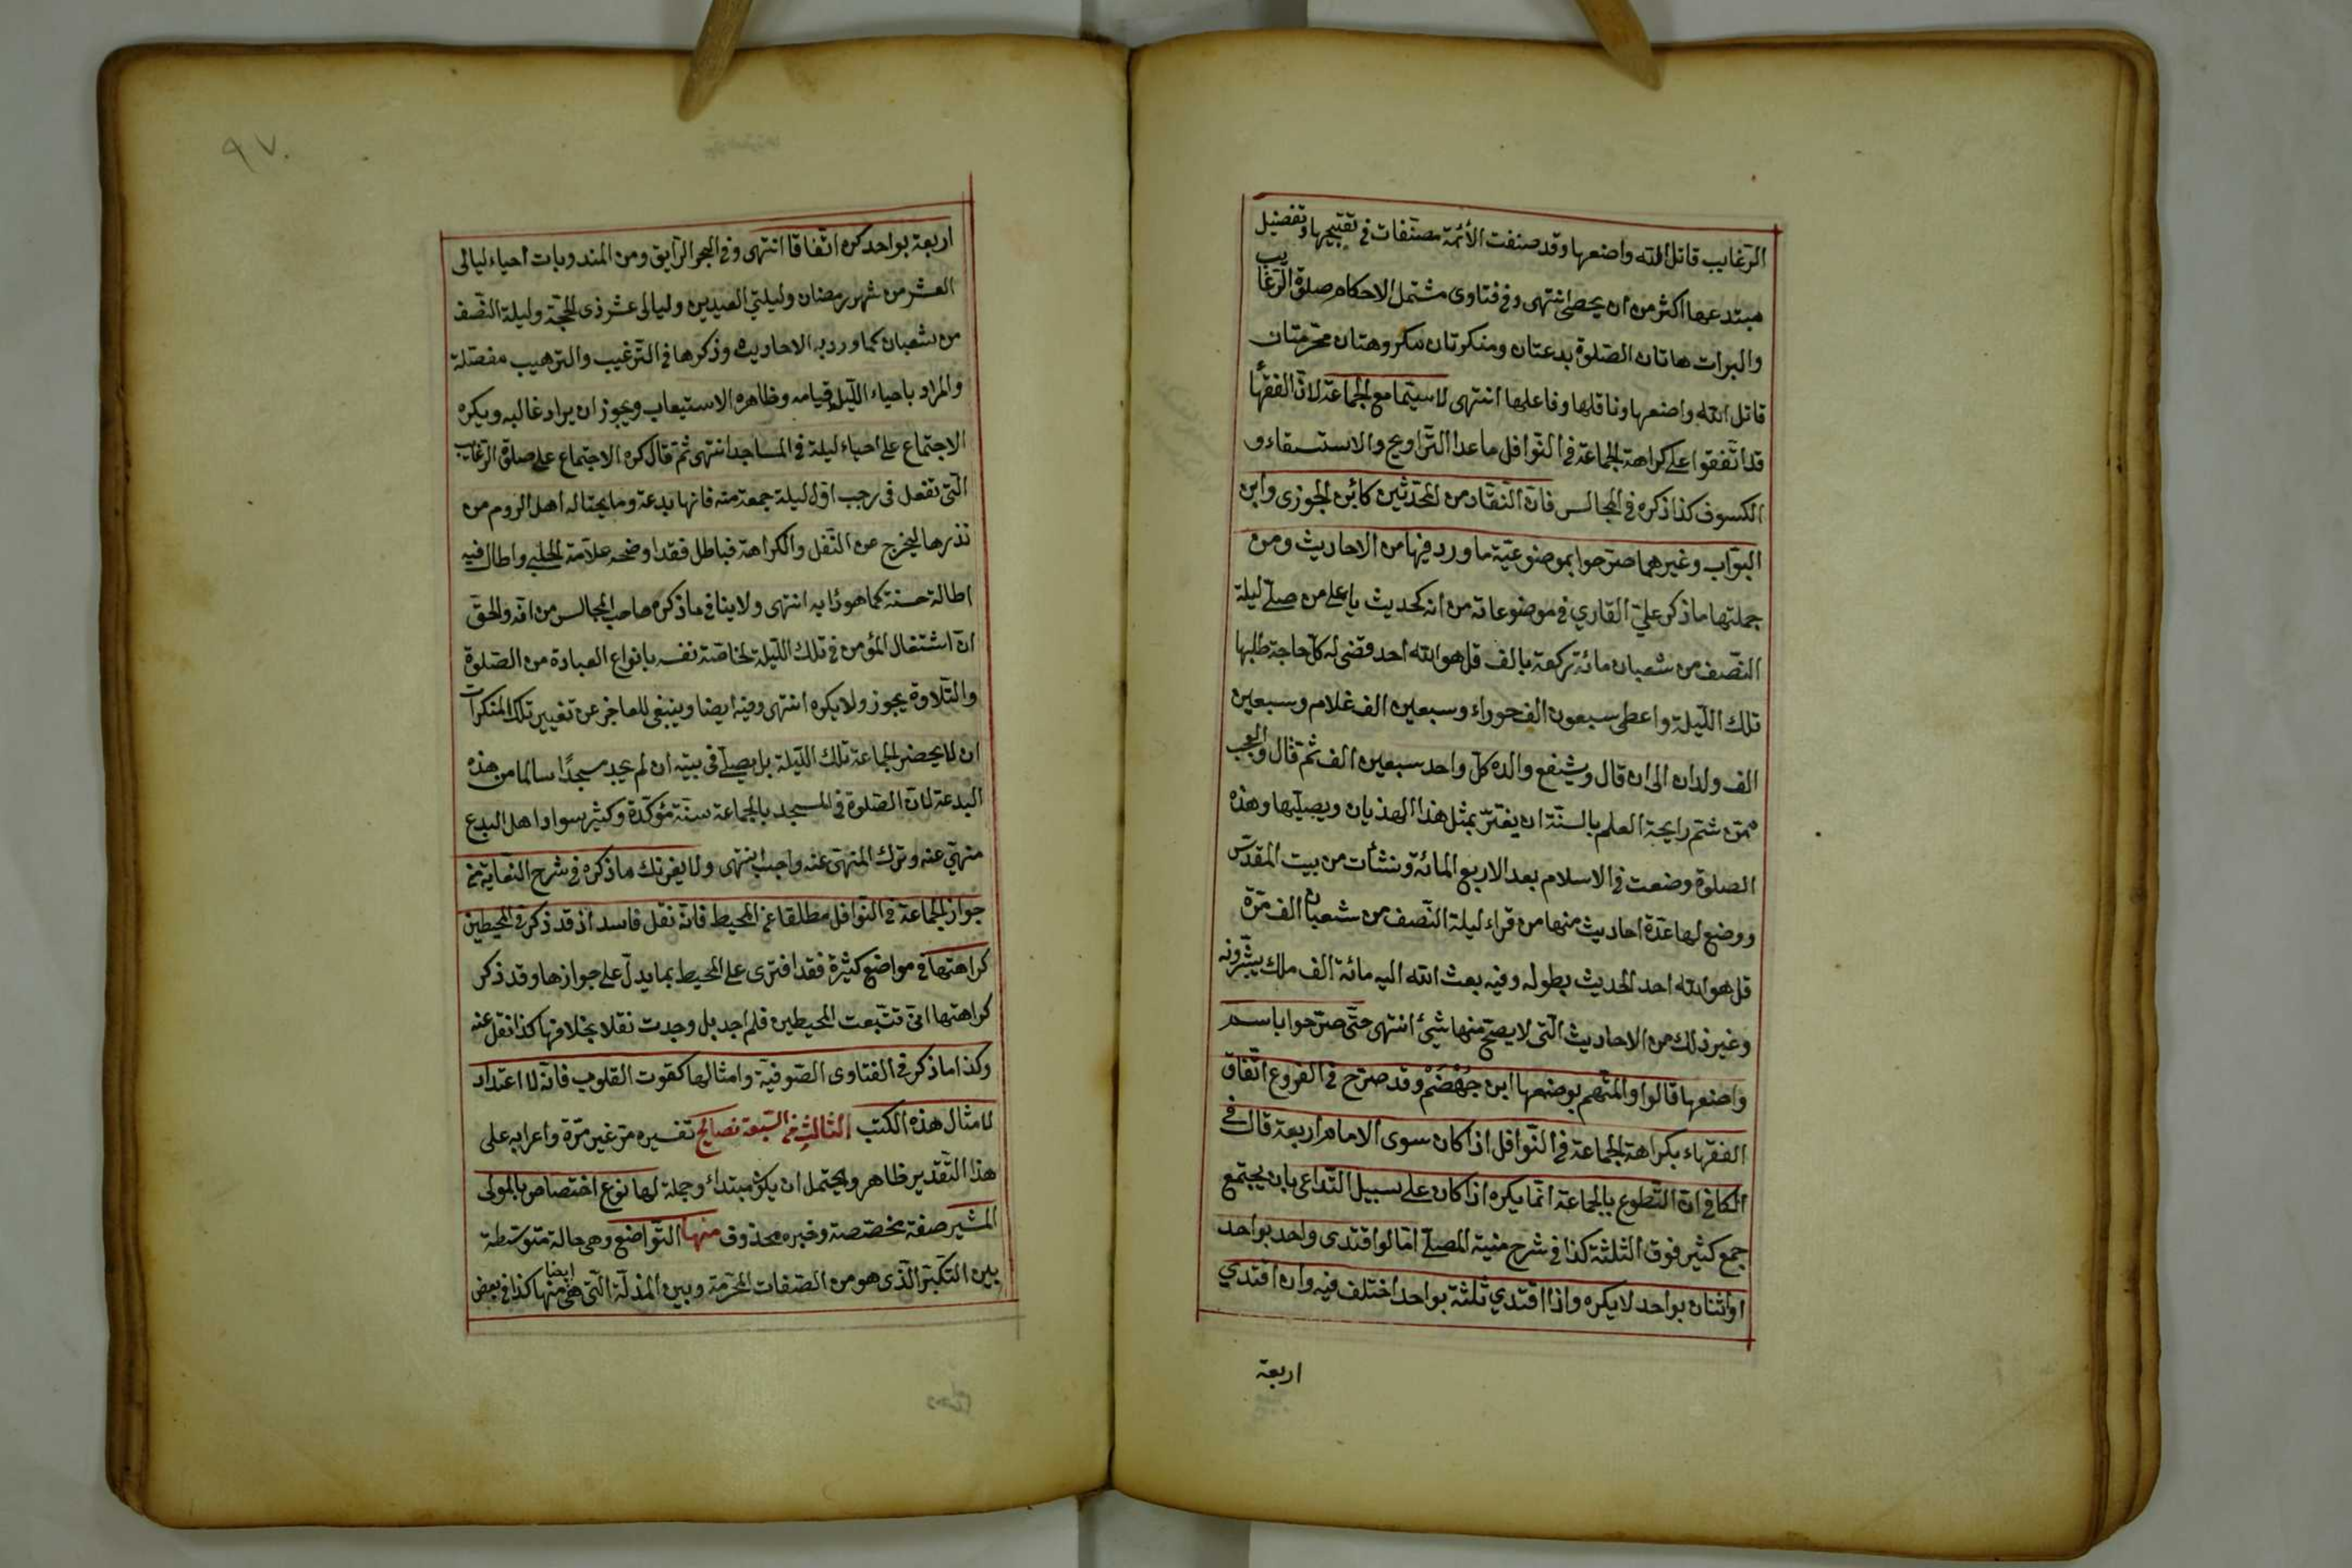 الرّغايب قاتل الله واضعها وقد صنفت الأئمّة مصنّفات في تقبيحها وتفضيل
مبتدعها اكثر من ان يحصى انتهى وفي فتاوى مشتمل الاحكام صلوة الرّغايب
والبرات هاتان الصّلوة بدعتان ومنكرتان مكروهتان محرّمتان
قاتل الله واضعها وناقلها وفاعلها انتهى لاسيّما مع الجماعة لانّ الفقها
قد اتّفقوا على كراهة الجماعة في النّوافل ماعدا التّراويح والاستسقاء و
الكسوف كذا ذكره في المجالس فانّ النّقاد من المحدّثين كابن الجوزى وابن
البوّاب وغيرهما صرّحوا بموضوعيّة ما ورد فيها من الاحاديث ومن
جملتها ما ذكر عليّ القاري في موضوعاته من انه كحديث يا على من صلّى ليلة
النّصف من شعبان مائة ركعة بالف قل هو الله احد قضى له كلّ حاجة طلبها
تلك اللّيلة واعطى سبعون الف حوراء وسبعين الف غلام وسبعين
الف ولدان الى ان قال ويشفع والده كلّ واحد سبعين الف ثمّ قال والعجب
ممّن شمّ رايحة العلم بالسنّة ان يغترّ بمثل هذا الهذيان ويصلّيها وهذه
الصلوة وضعت في الاسلام بعد الاربع المائة ونشأت من بيت المقدّس
ووضع لها عدّة احاديث منها من قراء ليلة النّصف من شعبان الف مرّة
قل هو الله احد الحديث بطوله وفيه بعث الله اليه مائة الف ملك يبشّرونه
وغير ذلك من الاحاديث الّتى لا يصحّ منها شيئ انتهى حتّى صرّحوا باسم
واضعها قالوا والمتّهم بوضعها ابن جهضم وقد صرّح في الفروع اتّفاق
الفقهاء بكراهة الجماعة في النّوافل اذا كان سوى الامام اربعة قال في
الكافى انّ التّطوع بالجماعة انّما يكره اذا كان على سبيل التّداعى بان يجتمع
جمع كثير فوق الثلثة كذا في شرح منية المصلّى امّا لو اقتدى واحد بواحد
او اثنان بواحد لا يكره واذا اقتدي ثلثة بواحد اختلف فيه وان اقتدي
اربعة
٩٧
اربعة بواحد كره اتّفاقا انتهى وفي البحر الرّايق ومن المندوبات احياء ليالى
العشر من شهر رمضان وليلتي العيدين وليالى عشر ذى الحجّة وليلة النّصف
من شعبان كما ورد به الاحاديث وذكرها في التّرغيب والترهيب مفصّلة
والمراد باحياء اللّيل قيامه وظاهره الاستيعاب ويجوز ان يراد غالبه ويكره
الاجتماع على احياء ليلة في المساجد انتهى ثمّ قال كره الاجتماع على صلوة الرّغايب
الّتى تفعل فى رجب اوّل ليلة جمعة منه فانها بدعة وما يحتاله اهل الروم من
نذرها ليخرج عن النّفل والكراهة فباطل فقد اوضحه علاّمة الحلبى واطال فيه
اطالة حسنة كما هو دأبه انتهى ولا ينافى ما ذكره صاحب المجالس من انّه والحقّ
انّ اشتغال المؤمن في تلك اللّيلة لخاصّة نفسه بانواع العبادة من الصّلوة
والتّلاوة يجوز ولا يكره انتهى وفيه ايضا وينبغى للعاجز عن تغيير تلك المنكرات
ان لا يحضر الجماعة تلك اللّيلة بل يصلّى فى بيته ان لم يجد مسجدًا سالما من هذه
البدعة لانّ الصّلوة في المسجد بالجماعة سنّة مؤكّدة وكثير سواد اهل البدع
منهيّ عنه وترك المنهى عنه واجب انتهى ولا يغرنّك ما ذكره في شرح النّقاية من
جواز الجماعة في النّوافل مطلقا عن المحيط فانّه نقل فاسد اذ قد ذكر في المحيطين
كراهتها في مواضع كثيرة فقد افترى على المحيط بما يدلّ على جوازها وقد ذكر
كراهتها انّى تتبّعت المحيطين فلم اجد بل وجدت نقلا بخلافها كذا نقل عنه
وكذا ما ذكر في الفتاوى الصّوفيّة وامثالها كقوت القلوب فانّه لا اعتداد
لامثال هذه الكتب الثالث من السّبعة نصائح تفسيره مرّ غير مرّة واعرابه على
هذا التّقدير ظاهر ويحتمل ان يكون مبتداء وجملة لها نوع اختصاص بالمولى
المشير صفة مخصّصة وخبره محذوف منها التّواضع وهى حالة متوسّطة
بين التكبّر الّذى هو من الصّفات المحرّمة وبين المذلّة الّتى هى ايضا منها كذا في بعض